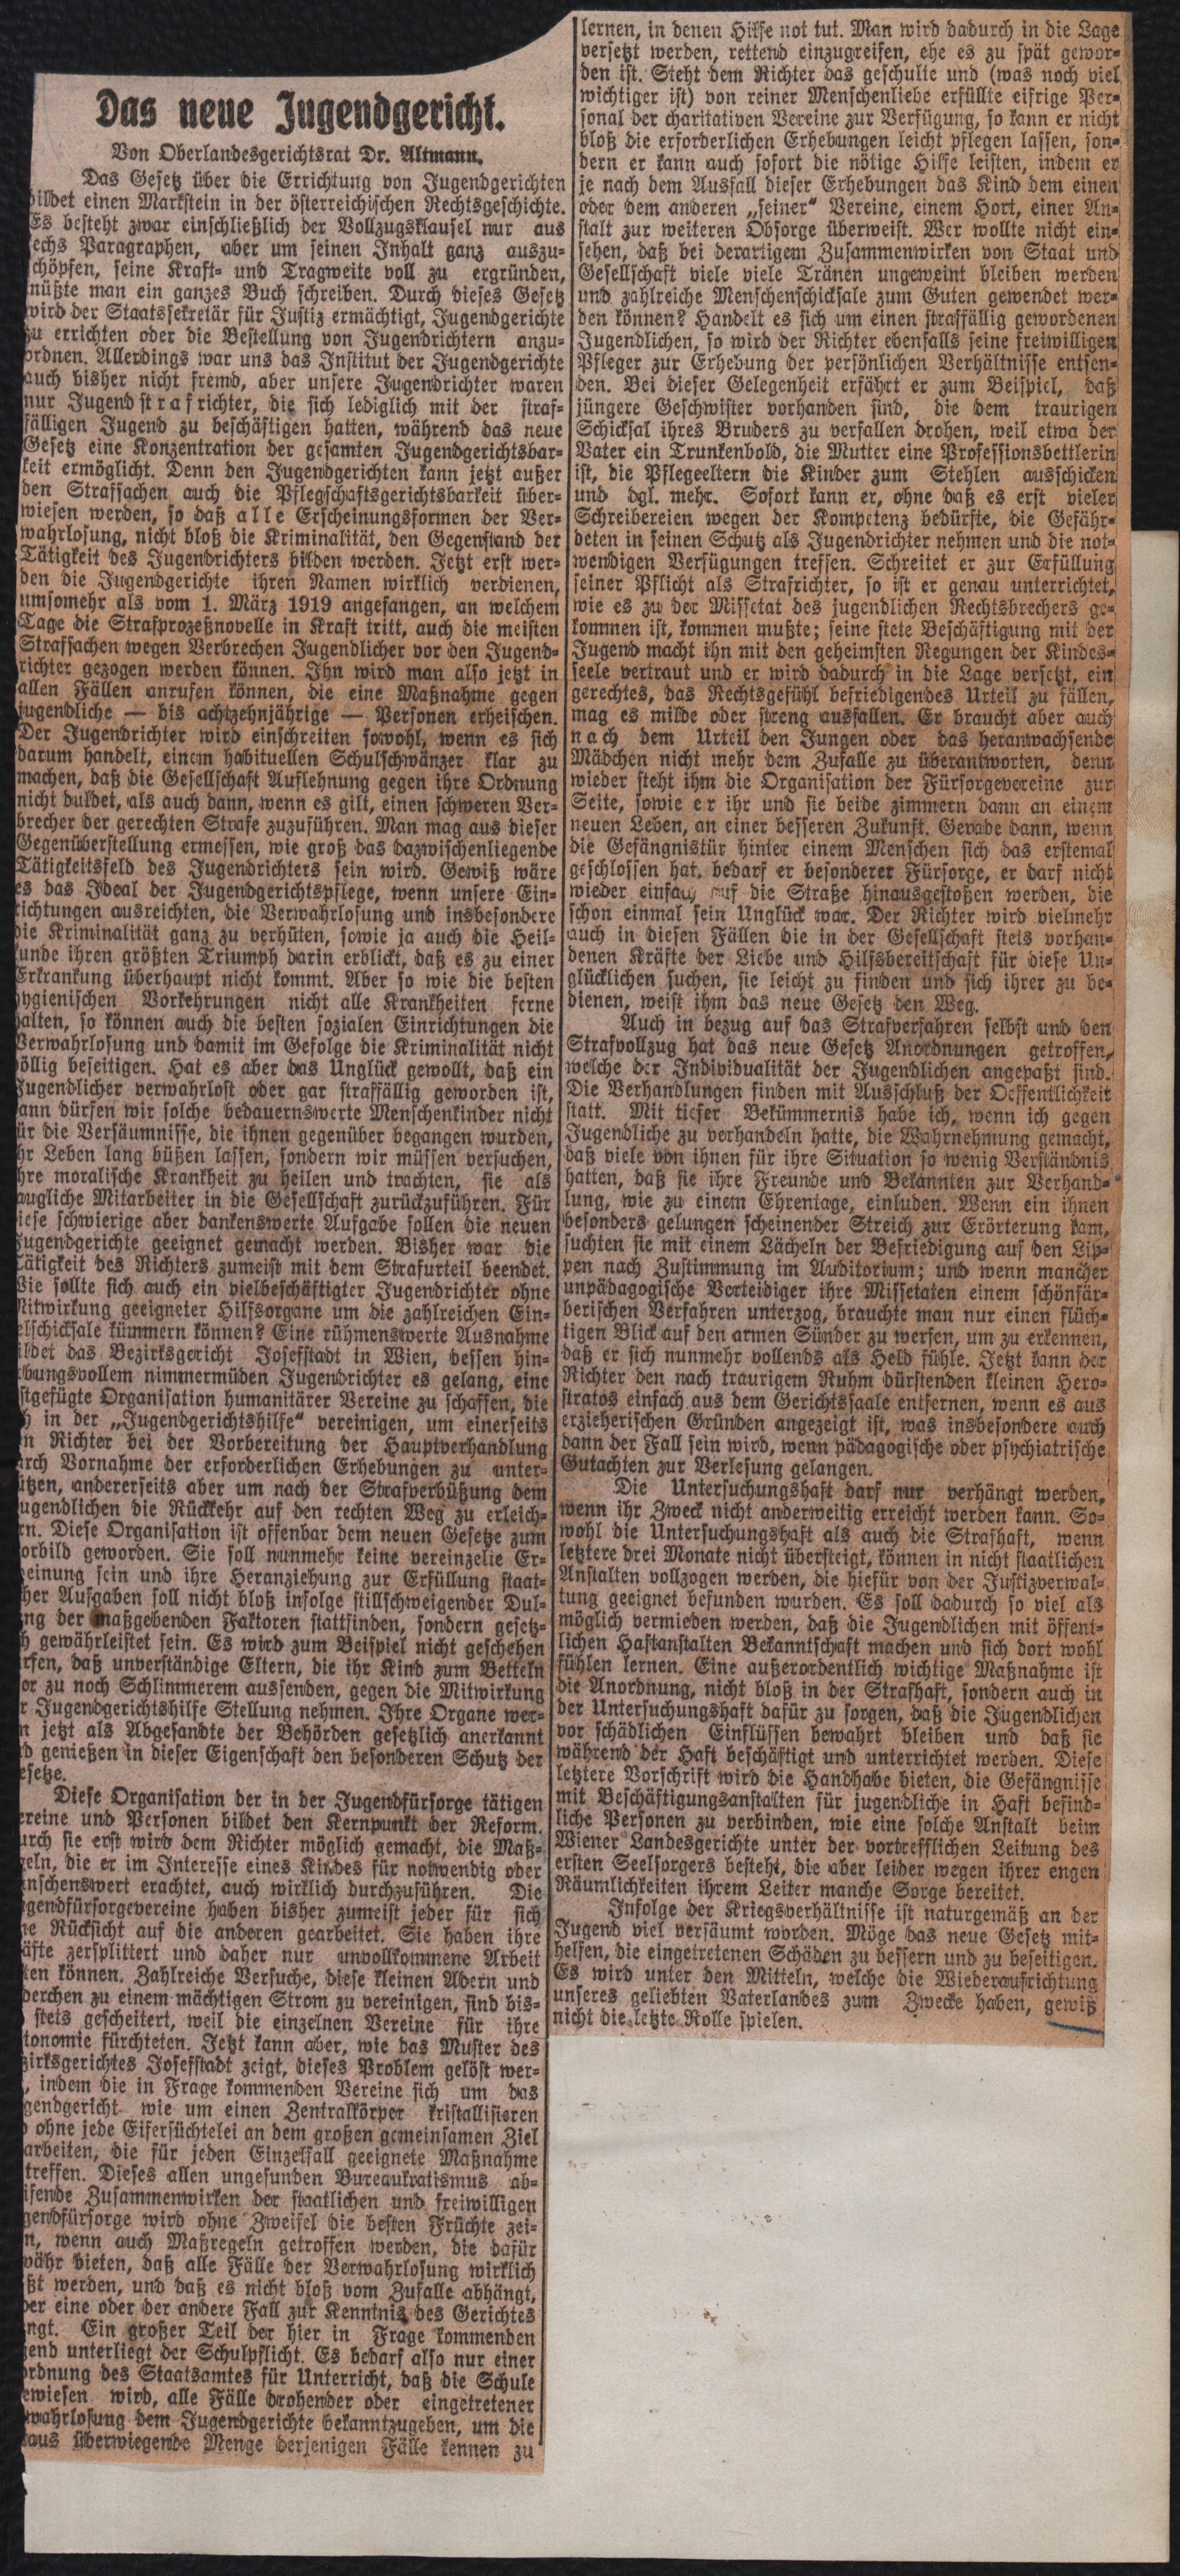 Das neue Jugendgericht.
Von Oberlandesgerichtsrat Dr. Altmann.
Das Gesetz über die Errichtung von Jugendgerichten
bildet einen Markstein in der österreichischen Rechtsgeschichte.
Es besteht zwar einschließlich der Vollzugsklausel nur aus
sechs Paragraphen, aber um seinen Inhalt ganz auszu-
schöpfen, seine Kraft- und Tragweite voll zu ergründen,
müßte man ein ganzes Buch schreiben. Durch dieses Gesetz
wird der Staatssekretär für Justiz ermächtigt, Jugendgerichte
zu errichten oder die Bestellung von Jugendrichtern anzu-
ordnen. Allerdings war uns das Institut der Jugendgerichte
auch bisher nicht fremd, aber unsere Jugendrichter waren
nur Jugendstrafrichter, die sich lediglich mit der straf-
fälligen Jugend zu beschäftigen hatten, während das neue
Gesetz eine Konzentration der gesamten Jugendgerichtsbar-
keit ermöglicht. Denn den Jugendgerichten kann jetzt außer
den Strafsachen auch die Pflegschaftsgerichtsbarkeit über-
wiesen werden, so daß alle Erscheinungsformen der Ver-
wahrlosung, nicht bloß die Kriminalität, den Gegenstand der
Tätigkeit des Jugendrichters bilden werden. Jetzt erst wer-
den die Jugendgerichte ihren Namen wirklich verdienen,
umsomehr als vom 1. März 1919 angefangen, an welchem
Tage die Strafprozeßnovelle in Kraft tritt, auch die meisten
Strafsachen wegen Verbrechen Jugendlicher vor den Jugend-
richter gezogen werden können. Ihn wird man also jetzt in
allen Fällen anrufen können, die eine Maßnahme gegen
jugendliche — bis achtzehnjährige — Personen erheischen.
Der Jugendrichter wird einschreiten sowohl, wenn es sich
darum handelt, einem habituellen Schulschwänzer klar zu
machen, daß die Gesellschaft Auflehnung gegen ihre Ordnung
nicht duldet, als auch dann, wenn es gilt, einen schweren Ver-
brecher der gerechten Strafe zuzuführen. Man mag aus dieser
Gegenüberstellung ermessen, wie groß das dazwischenliegende
Tätigkeitsfeld des Jugendrichters sein wird. Gewiß wäre
es das Ideal der Jugendgerichtspflege, wenn unsere Ein-
richtungen ausreichten, die Verwahrlosung und insbesondere
die Kriminalität ganz zu verhüten, sowie ja auch die Heil-
kunde ihren größten Triumph darin erblickt, daß es zu einer
Erkrankung überhaupt nicht kommt. Aber so wie die besten
hygienischen Vorkehrungen nicht alle Krankheiten ferne
halten, so können auch die besten sozialen Einrichtungen die
Verwahrlosung und damit im Gefolge die Kriminalität nicht
völlig beseitigen. Hat es aber das Unglück gewollt, daß ein
Jugendlicher verwahrlost oder gar straffällig geworden ist,
ann dürfen wir solche bedauernswerte Menschenkinder nicht
ür die Versäumnisse, die ihnen gegenüber begangen wurden,
hr Leben lang büßen lassen, sondern wir müssen versuchen,
hre moralische Krankheit zu heilen und trachten, sie als
augliche Mitarbeiter in die Gesellschaft zurückzuführen. Für
iese schwierige aber dankenswerte Aufgabe sollen die neuen
Jugendgerichte geeignet gemacht werden. Bisher war die
Tätigkeit des Richters zumeist mit dem Strafurteil beendet.
Wie sollte sich auch ein vielbeschäftigter Jugendrichter ohne
Mitwirkung geeigneter Hilfsorgane um die zahlreichen Ein-
elschicksale kümmern können? Eine rühmenswerte Ausnahme
ildet das Bezirksgericht Josefstadt in Wien, dessen hin-
ebungsvollem nimmermüden Jugendrichter es gelang, eine
stgefügte Organisation humanitärer Vereine zu schaffen, die
h in der „Jugendgerichtshilfe“ vereinigen, um einerseits
n Richter bei der Vorbereitung der Hauptverhandlung
urch Vornahme der erforderlichen Erhebungen zu unter-
ützen, andererseits aber um nach der Strafverbüßung dem
ugendlichen die Rückkehr auf den rechten Weg zu erleich-
rn. Diese Organisation ist offenbar dem neuen Gesetze zum
orbild geworden. Sie soll nunmehr keine vereinzelte Er-
einung sein und ihre Heranziehung zur Erfüllung staat-
her Aufgaben soll nicht bloß infolge stillschweigender Dul-
ng der maßgebenden Faktoren stattfinden, sondern gesetz-
h gewährleistet sein. Es wird zum Beispiel nicht geschehen
rfen, daß unverständige Eltern, die ihr Kind zum Betteln
or zu noch Schlimmerem aussenden, gegen die Mitwirkung
r Jugendgerichtshilfe Stellung nehmen. Ihre Organe wer-
n jetzt als Abgesandte der Behörden gesetzlich anerkannt
d genießen in dieser Eigenschaft den besonderen Schutz der
esetze.
Diese Organisation der in der Jugendfürsorge tätigen
ereine und Personen bildet den Kernpunkt der Reform.
urch sie erst wird dem Richter möglich gemacht, die Maß-
eln, die er im Interesse eines Kindes für notwendig oder
nschenswert erachtet, auch wirklich durchzuführen. Die
gendfürsorgevereine haben bisher zumeist jeder für sich
ne Rücksicht auf die anderen gearbeitet. Sie haben ihre
äfte zersplittert und daher nur unvollkommene Arbeit
ten können. Zahlreiche Versuche, diese kleinen Adern und
derchen zu einem mächtigen Strom zu vereinigen, sind bis-
stets gescheitert, weil die einzelnen Vereine für ihre
tonomie fürchteten. Jetzt kann aber, wie das Muster des
zirksgerichtes Josefstadt zeigt, dieses Problem gelöst wer-
, indem die in Frage kommenden Vereine sich um das
gendgericht wie um einen Zentralkörper kristallisieren
ohne jede Eifersüchtelei an dem großen gemeinsamen Ziel
arbeiten, die für jeden Einzelfall geeignete Maßnahme
treffen. Dieses allen ungesunden Bureaukratismus ab-
ifende Zusammenwirken der staatlichen und freiwilligen
gendfürsorge wird ohne Zweifel die besten Früchte zei-
n, wenn auch Maßregeln getroffen werden, die dafür
währ bieten, daß alle Fälle der Verwahrlosung wirklich
ßt werden, und daß es nicht bloß vom Zufalle abhängt,
er eine oder der andere Fall zur Kenntnis des Gerichtes
ngt. Ein großer Teil der hier in Frage kommenden
gend unterliegt der Schulpflicht. Es bedarf also nur einer
ordnung des Staatsamtes für Unterricht, daß die Schule
ewiesen wird, alle Fälle drohender oder eingetretener
wahrlosung dem Jugendgerichte bekanntzugeben, um die
aus überwiegende Menge derjenigen Fälle kennen zu
lernen, in denen Hilfe not tut. Man wird dadurch in die Lage
versetzt werden, rettend einzugreifen, ehe es zu spät gewor-
den ist. Steht dem Richter das geschulte und (was noch viel
wichtiger ist) von reiner Menschenliebe erfüllte eifrige Per-
sonal der charitativen Vereine zur Verfügung, so kann er nicht
bloß die erforderlichen Erhebungen leicht pflegen lassen, son-
dern er kann auch sofort die nötige Hilfe leisten, indem er
je nach dem Ausfall dieser Erhebungen das Kind dem einen
oder dem anderen „seiner“ Vereine, einem Hort, einer An-
stalt zur weiteren Obsorge überweist. Wer wollte nicht ein-
sehen, daß bei derartigem Zusammenwirken von Staat und
Gesellschaft viele viele Tränen ungeweint bleiben werden
und zahlreiche Menschenschicksale zum Guten gewendet wer-
den können? Handelt es sich um einen straffällig gewordenen
Jugendlichen, so wird der Richter ebenfalls seine freiwilligen
Pfleger zur Erhebung der persönlichen Verhältnisse entsen-
den. Bei dieser Gelegenheit erfährt er zum Beispiel, daß
jüngere Geschwister vorhanden sind, die dem traurigen
Schicksal ihres Bruders zu verfallen drohen, weil etwa der
Vater ein Trunkenbold, die Mutter eine Professionsbettlerin
ist, die Pflegeeltern die Kinder zum Stehlen ausschicken
und dgl. mehr. Sofort kann er, ohne daß es erst vieler
Schreibereien wegen der Kompetenz bedürfte, die Gefähr-
deten in seinen Schutz als Jugendrichter nehmen und die not-
wendigen Verfügungen treffen. Schreitet er zur Erfüllung
seiner Pflicht als Strafrichter, so ist er genau unterrichtet,
wie es zu der Missetat des jugendlichen Rechtsbrechers ge-
kommen ist, kommen mußte; seine stete Beschäftigung mit der
Jugend macht ihn mit den geheimsten Regungen der Kindes-
seele vertraut und er wird dadurch in die Lage versetzt, ein
gerechtes, das Rechtsgefühl befriedigendes Urteil zu fällen,
mag es milde oder streng ausfallen. Er braucht aber auch
nach dem Urteil den Jungen oder das heranwachsende
Mädchen nicht mehr dem Zufalle zu überantworten, denn
wieder steht ihm die Organisation der Fürsorgevereine zur
Seite, sowie er ihr und sie beide zimmern dann an einem
neuen Leben, an einer besseren Zukunft. Gerade dann, wenn
die Gefängnistür hinter einem Menschen sich das erstemal
geschlossen hat, bedarf er besonderer Fürsorge, er darf nicht
wieder einfach auf die Straße hinausgestoßen werden, die
schon einmal sein Unglück war. Der Richter wird vielmehr
auch in diesen Fällen die in der Gesellschaft stets vorhan-
denen Kräfte der Liebe und Hilfsbereitschaft für diese Un-
glücklichen suchen, sie leicht zu finden und sich ihrer zu be-
dienen, weist ihm das neue Gesetz den Weg.
Auch in bezug auf das Strafverfahren selbst und den
Strafvollzug hat das neue Gesetz Anordnungen getroffen,
welche der Individualität der Jugendlichen angepaßt sind.
Die Verhandlungen finden mit Ausschluß der Oeffentlichkeit
statt. Mit tiefer Bekümmernis habe ich, wenn ich gegen
Jugendliche zu verhandeln hatte, die Wahrnehmung gemacht,
daß viele von ihnen für ihre Situation so wenig Verständnis
hatten, daß sie ihre Freunde und Bekannten zur Verhand-
lung, wie zu einem Ehrentage, einluden. Wenn ein ihnen
besonders gelungen scheinender Streich zur Erörterung kam,
suchten sie mit einem Lächeln der Befriedigung auf den Lip-
pen nach Zustimmung im Auditorium; und wenn mancher
unpädagogische Verteidiger ihre Missetaten einem schönfär-
berischen Verfahren unterzog, brauchte man nur einen flüch-
tigen Blick auf den armen Sünder zu werfen, um zu erkennen,
daß er sich nunmehr vollends als Held fühle. Jetzt kann der
Richter den nach traurigem Ruhm dürstenden kleinen Hero-
stratos einfach aus dem Gerichtssaale entfernen, wenn es aus
erzieherischen Gründen angezeigt ist, was insbesondere auch
dann der Fall sein wird, wenn pädagogische oder psychiatrische
Gutachten zur Verlesung gelangen.
Die Untersuchungshaft darf nur verhängt werden,
wenn ihr Zweck nicht anderweitig erreicht werden kann. So-
wohl die Untersuchungshaft als auch die Strafhaft, wenn
letztere drei Monate nicht übersteigt, können in nicht staatlichen
Anstalten vollzogen werden, die hiefür von der Justizverwal-
tung geeignet befunden wurden. Es soll dadurch so viel als
möglich vermieden werden, daß die Jugendlichen mit öffent-
lichen Haftanstalten Bekanntschaft machen und sich dort wohl
fühlen lernen. Eine außerordentlich wichtige Maßnahme ist
die Anordnung, nicht bloß in der Strafhaft, sondern auch in
der Untersuchungshaft dafür zu sorgen, daß die Jugendlichen
vor schädlichen Einflüssen bewahrt bleiben und daß sie
während der Haft beschäftigt und unterrichtet werden. Diese
letztere Vorschrift wird die Handhabe bieten, die Gefängnisse
mit Beschäftigungsanstalten für jugendliche in Haft befind-
liche Personen zu verbinden, wie eine solche Anstalt beim
Wiener Landesgerichte unter der vortrefflichen Leitung des
ersten Seelsorgers besteht, die aber leider wegen ihrer engen
Räumlichkeiten ihrem Leiter manche Sorge bereitet.
Infolge der Kriegsverhältnisse ist naturgemäß an der
Jugend viel versäumt worden. Möge das neue Gesetz mit-
helfen, die eingetretenen Schäden zu bessern und zu beseitigen.
Es wird unter den Mitteln, welche die Wiederaufrichtung
unseres geliebten Vaterlandes zum Zwecke haben, gewiß
nicht die letzte Rolle spielen.